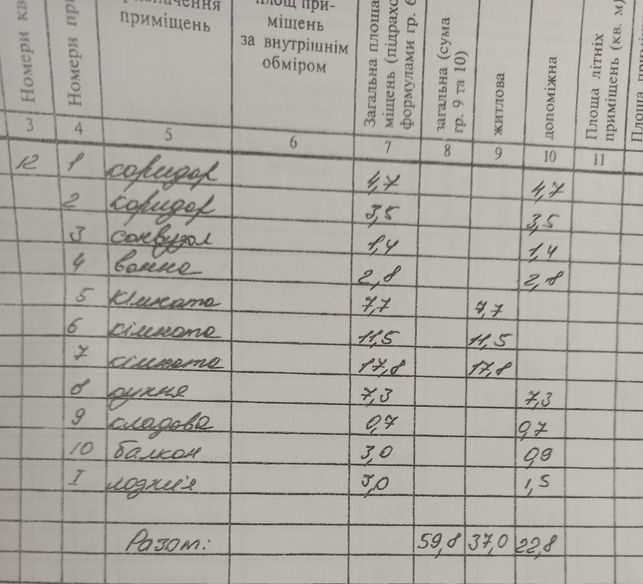 Номери кв
Номери при
значення
приміщень
площ при-
міщень
за внутрішнім
обміром
Загальна площа
міщень (підрахо
формулами гр. 6
загальна (сума
гр. 9 та 10)
житлова
допоміжна
Площа літніх
приміщень (кв. м)
3 4 5 6 7 8 9 10 11
12 1 коридор 4,7 4,7
2 коридор 3,5 3,5
3 санвузол 1,4 1,4
4 ванна 2,8 2,8
5 кімната 7,7 7,7
6 кімната 11,5 11,5
7 кімната 17,8 17,8
8 кухня 7,3 7,3
9 кладова 0,7 0,7
10 балкон 3,0 0,9
I лоджія 3,0 1,5
Разом: 59,8 37,0 22,8